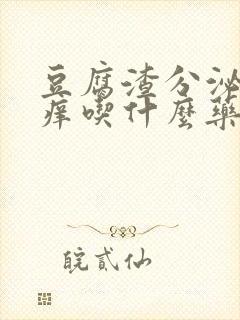 豆腐渣分泌
痒喫什麼藥
皖貳仙